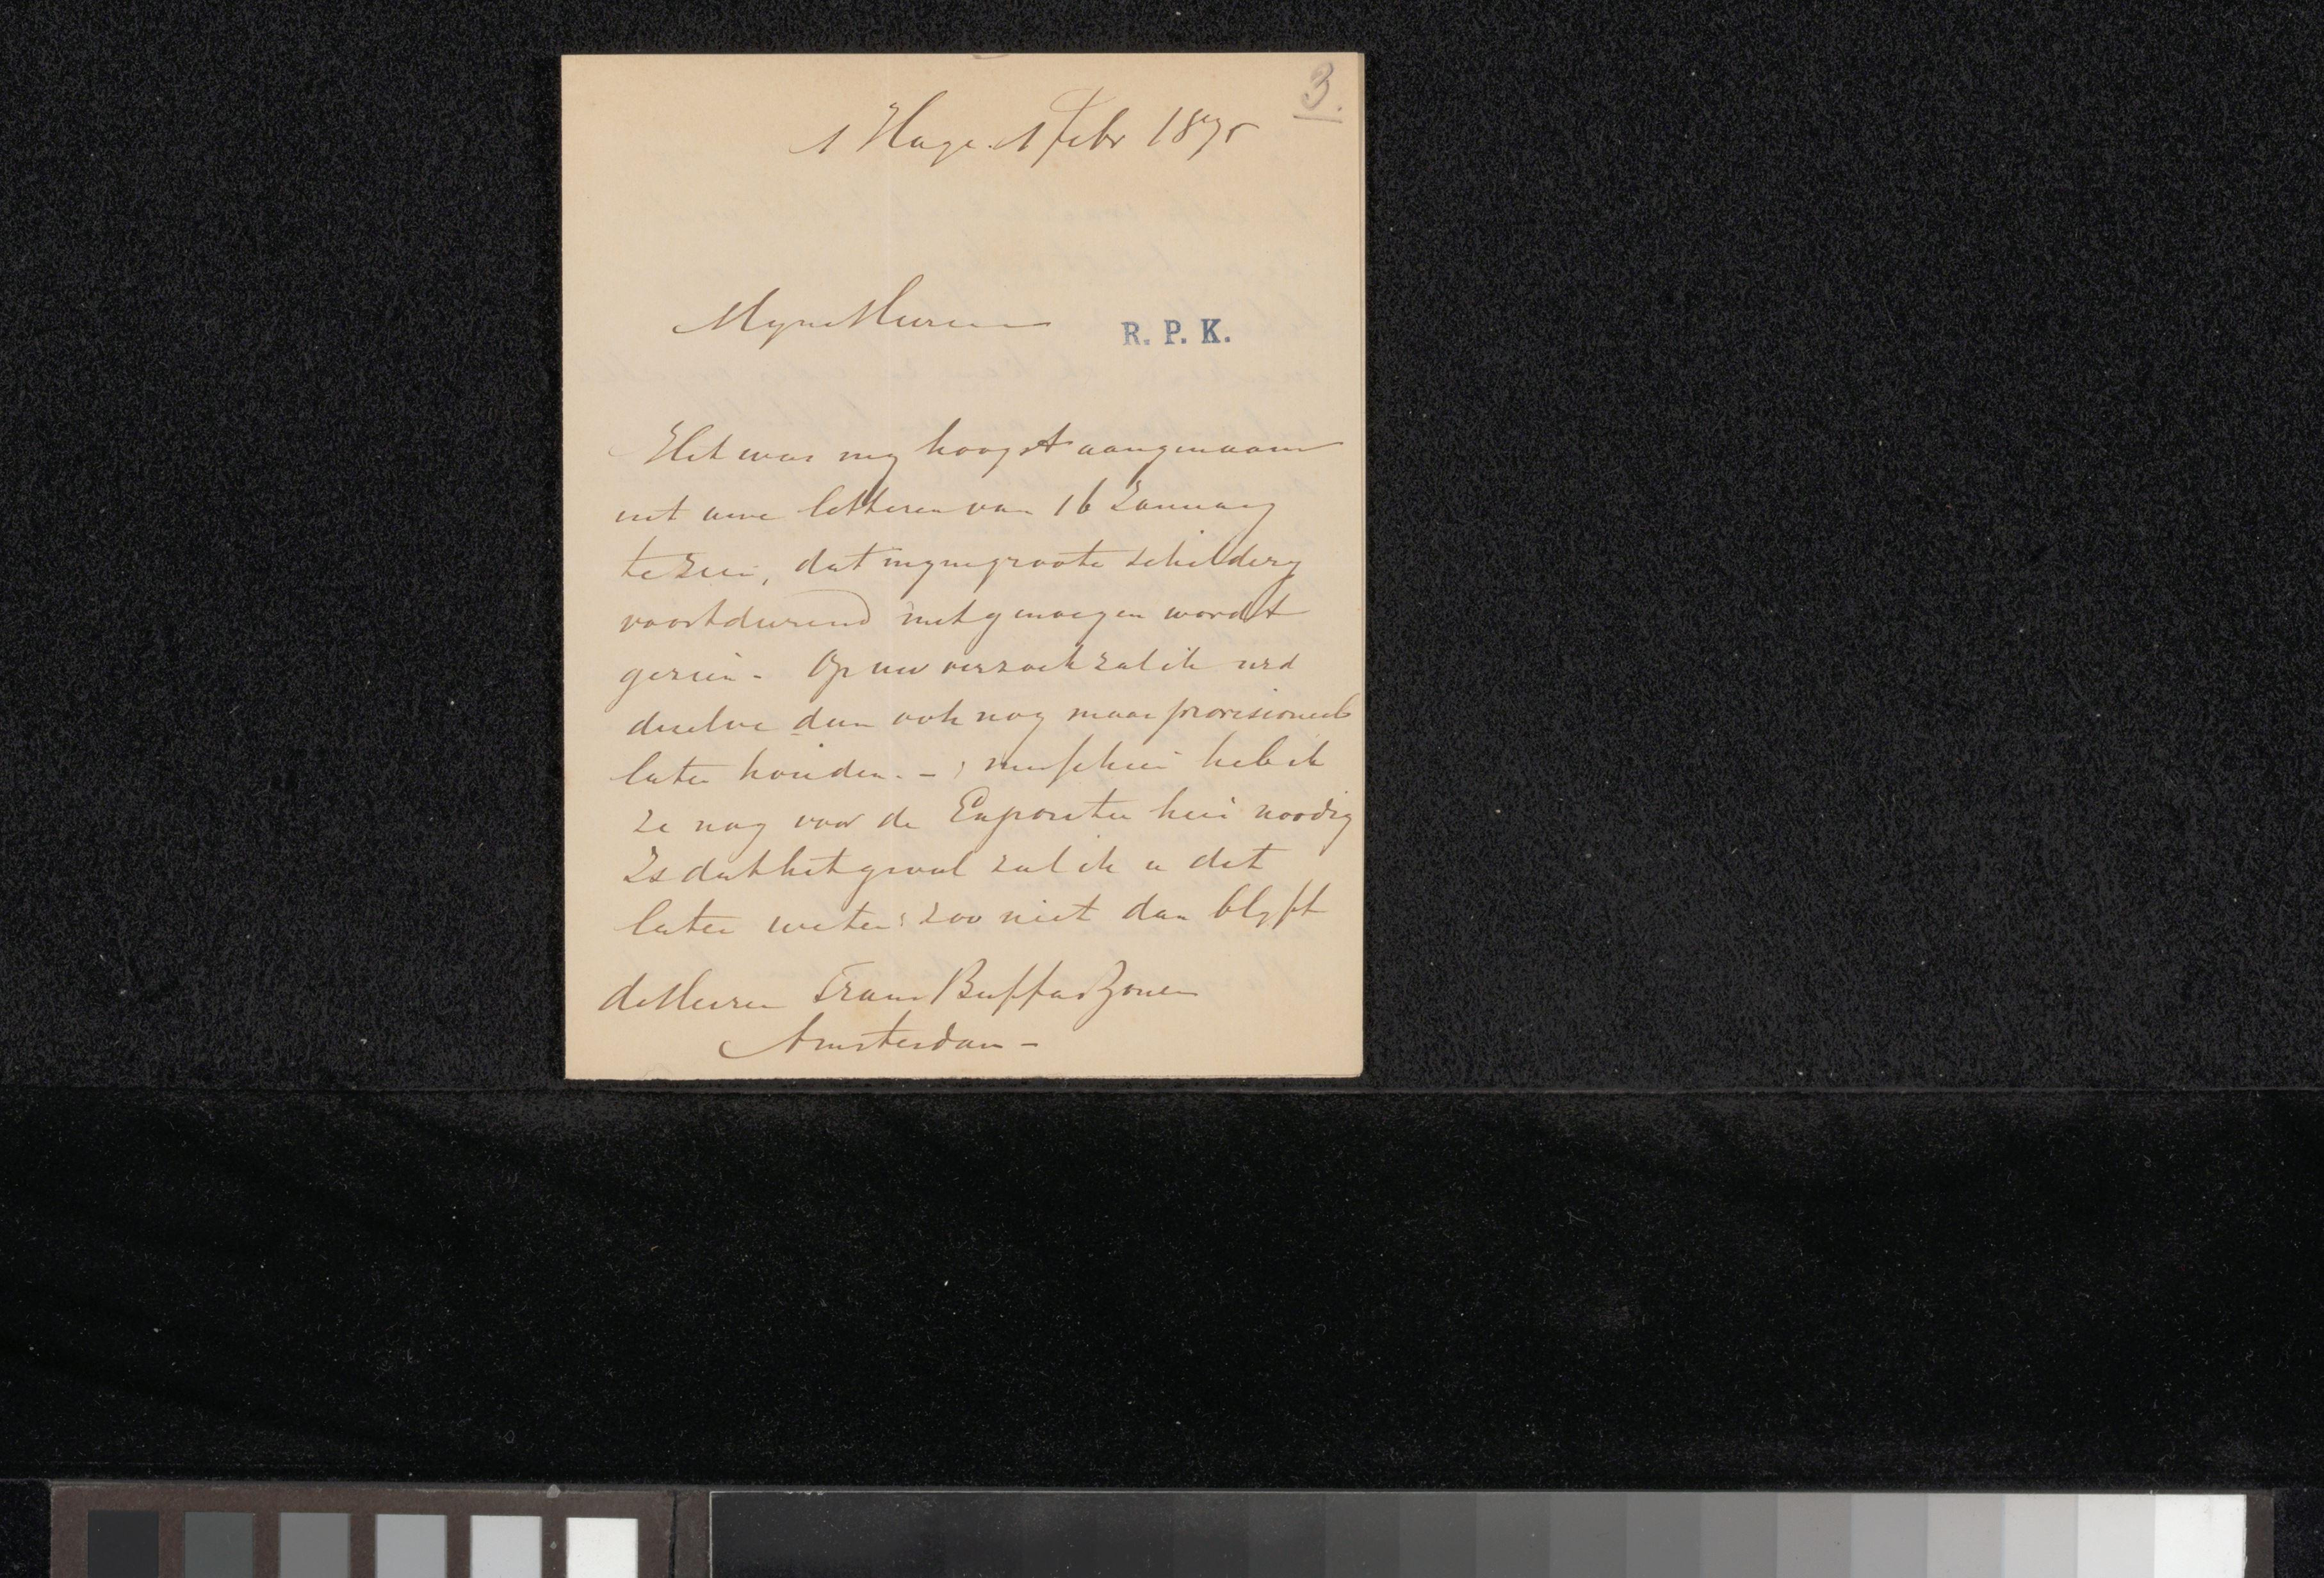 3.
s Hage. 1 Febr 1875
Myne Heeren
R. P. K.
Het was my hoogst aangenaam
uit uwe letteren van 16 January
te zien, dat myne groote schildery
voortdurend met genoegen wordt
gezien - Op uw verzoek zal ik
dezelve dan ook nog maar provisioneel
laten houden. - ; misschien heb ik
ze nog voor de Expositie hier noodig
Is dat het geval zal ik u dat
laten weten; zoo niet dan blyft
de Heeren Frans Buffa & Zonen
Amsterdam -